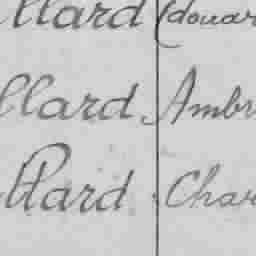 llard Edouar
llard Ambr
llard Char